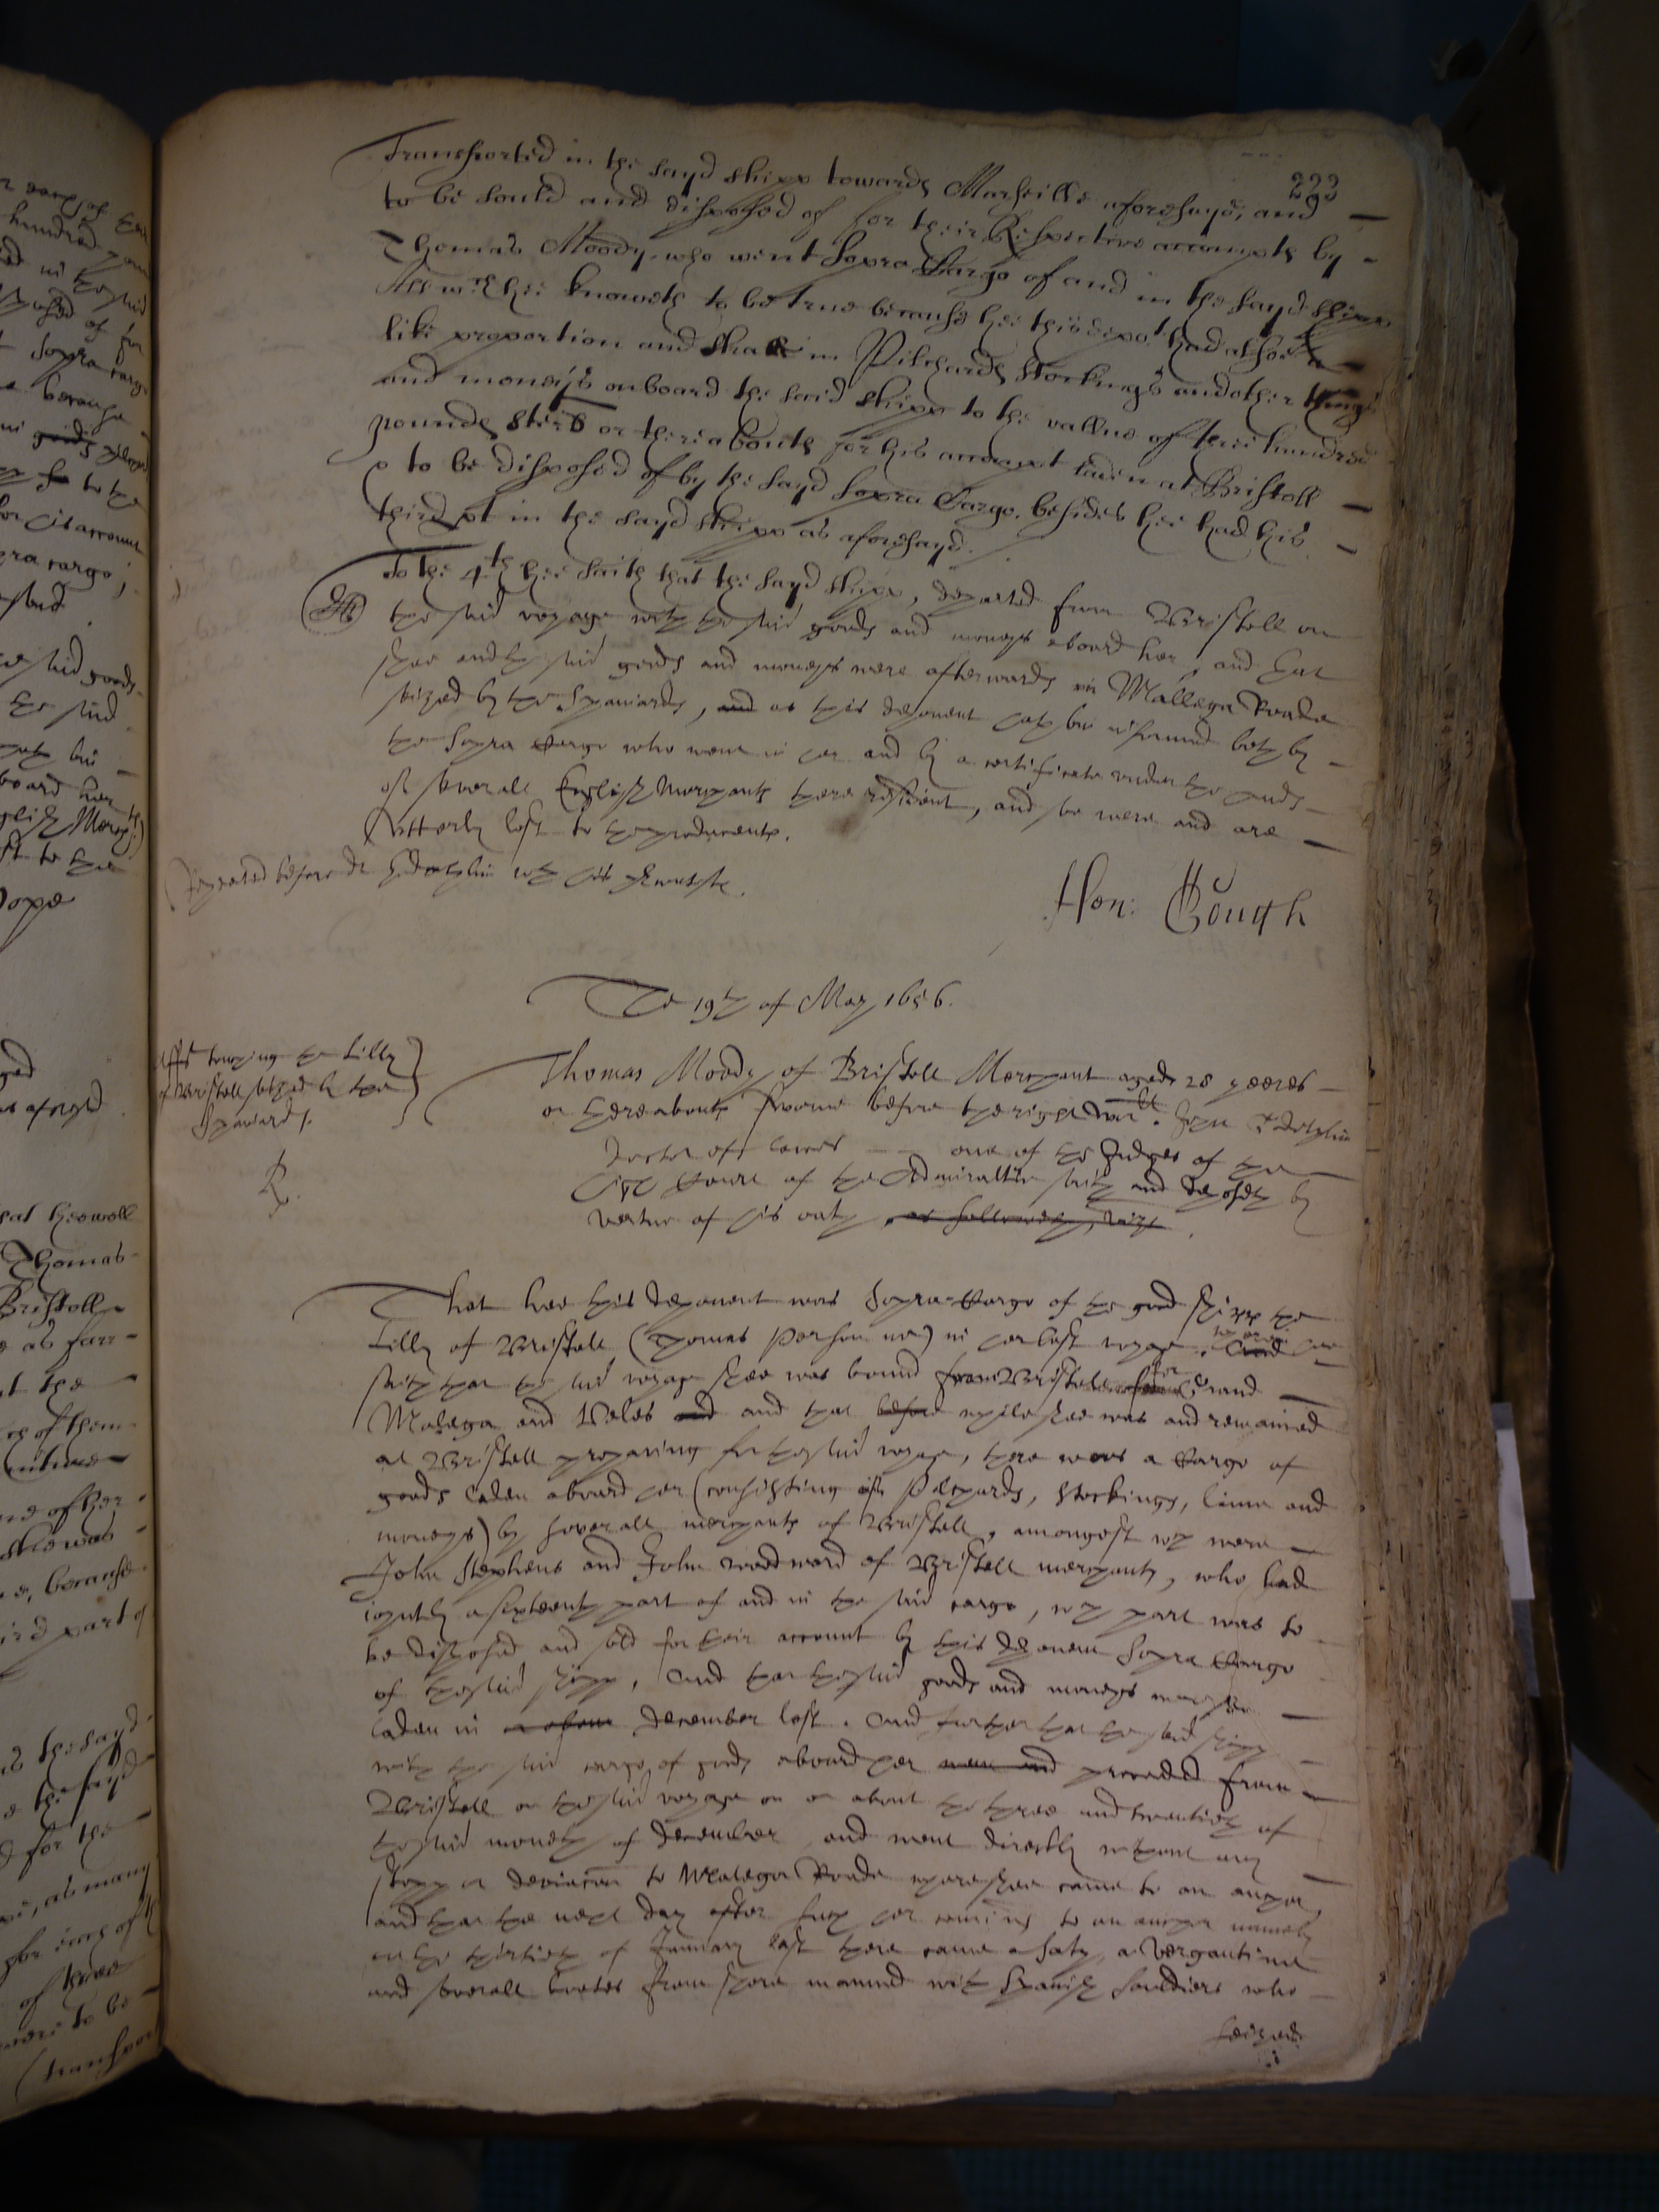 223
Transported in the sayd shipp towards Marseille aforesayd, and
to be sould and disposed of for their Respective accompts by
Thomas Moody, who went Supra Cargo of and in the sayd shipp
All wch hee knoweth to be true because hee this depot had alsoe a
like proportion and share in Pilchards stockings and other things
and moneys onboard the said shipp to the vallue of three hundred
pounds sterls or thereabouts for his accompt laden at Bristoll
to be disposed of by the sayd Supra Cargo. besides hee had his
third pt in the sayd shipp as aforesayd.
To the 4th hee saith that the sayd shipp, departed from Bristoll on
the said voyage with the said goods and moneys aboard her, and that
shee and the said goods and moneys were afterwards in Mallega Roade
seized by the Spaniards, and as this deponent hath bin informed both by
the Supra Cargo who went in her and by a certificate under the hands
of severall English Merchants there resident, and soe were and are
utterly lost to the producents.
Repeated before dr Godolphin
Hen: Gough
The 19th of May 1656.
touching the Lilly
of Bristoll seized by the
Spaniards.
Thomas Moody of Bristoll Merchant aged 28 yeeres
or thereabouts sworne before the right worll. John Godolphin
Doctor of lawes one of the Judges of the
high Court of the Admiraltie saith and deposeth by
vertue of his oath, as followeth, vizt.
That hee this deponent was Supra-Cargo of the good shipp the
Lilly of Bristoll (Thomas Pearson mr) in her last voyage. And hee
saith that the said voyage shee was bound from Bristoll for
Malega and Veles and and that before while shee was and remained
at Bristoll preparing for the said voyage, there was a Cargo of
goods laden aboard her (consisting in Pilchards, stockings, linnen and
moneys) by severall merchants of Bristoll, amongst wch were
John Stephens and John Woodward of Bristoll merchants, who had
joyntly a sixteenth part of and in the said cargo, wch part was to
be disposed and sold for their account by this deponent Supra Cargo
of the said shipp, And that the said goods and moneys were soe
laden in or about december last. And further that the said shipp
with the said cargo of goods aboard her went and proceeded from
Bristoll on the said voyage on or about the three and twentieth of
the said moneth of december and went directly without any
stopp or deviacon to Malega Roade where shee came to an anchor,
and that the next day after such her coming to an anchor namely
on the thirtieth of January last there came a saty, a Vergantine
and severall boates from shore manned with Spanish souldiers who
seized